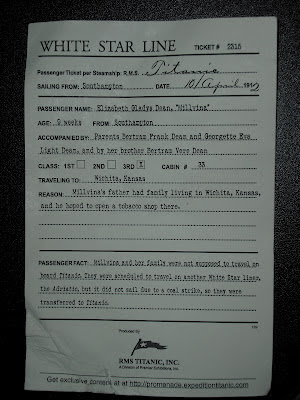 WHITE STAR LINE TICKET # 2315
Passenger Ticket per Steamship: R.M.S. Titanic
SAILING FROM: Southampton DATE 10/April/1912
PASSENGER NAME: Elizabeth Gladys Dean, "Millvina"
AGE: 9 weeks FROM: Southampton
ACCOMPANIED BY: Parents Bertram Frank Dean and Georgette Eva
Light Dean, and by her brother Bertram Vere Dean
CLASS: 1ST 2ND 3RD X CABIN # 33
TRAVELING TO: Wichita, Kansas
REASON: Millvina's father had family living in Wichita, Kansas,
and he hoped to open a tobacco shop there.
PASSENGER FACT: Millvina and her family were not supposed to travel on
board Titanic. They were scheduled to travel on another White Star liner,
the Adriatic, but it did not sail due to a coal strike, so they were
transferred to Titanic.
Produced by
RMS TITANIC, INC.
A Division of Premier Exhibitions, Inc.
Get exclusive content at at http://promenade.expeditiontitanic.com